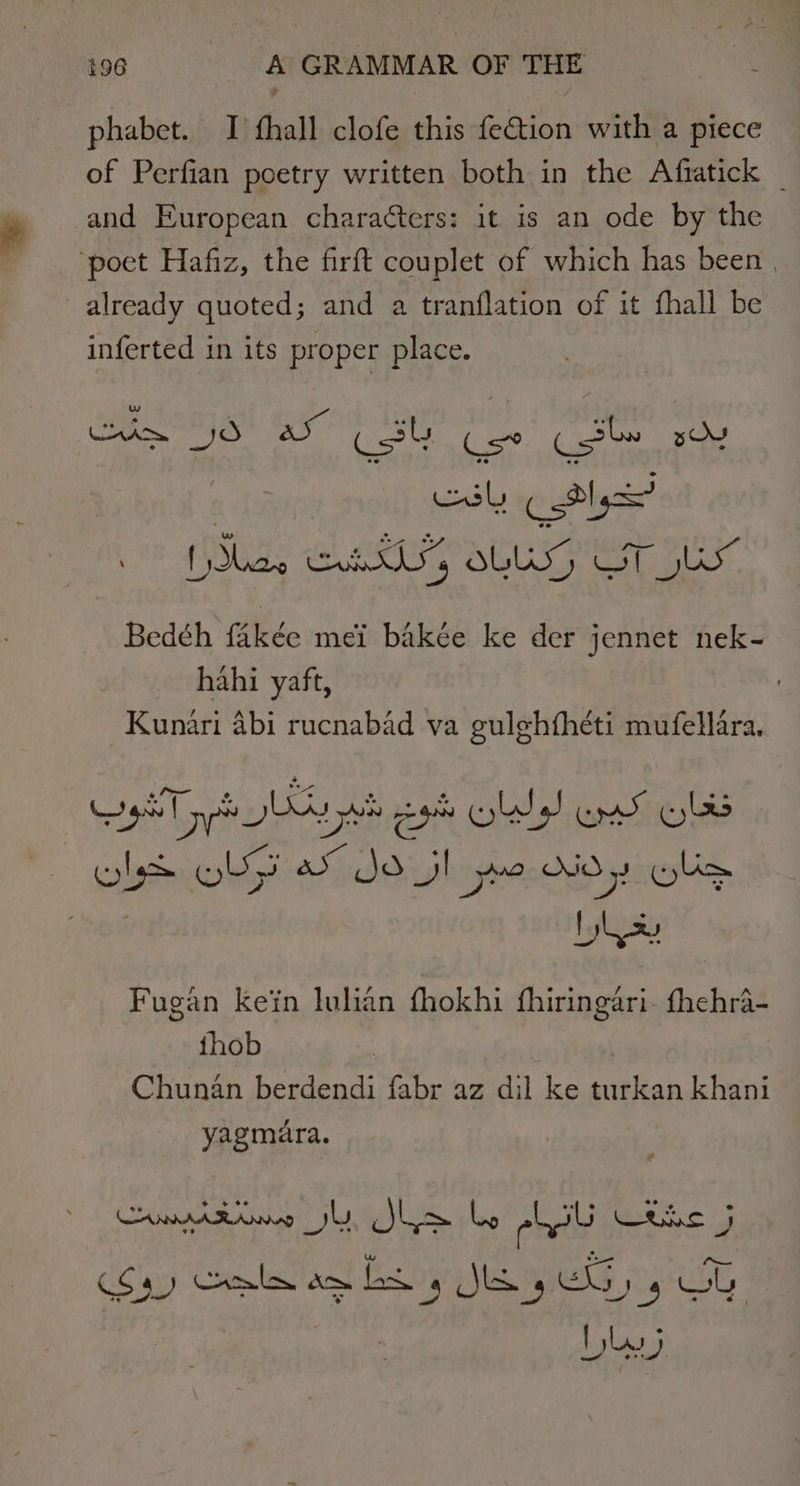 196 A GRAMMAR OF THE
phabet. I ſhall cloſe this ſection with a piece
of Perſian poetry written both in the Aſiatick
and European characters: it is an ode by the
poet Hafiz, the firſt couplet of which has been
already quoted; and a tranſlation of it ſhall be
inſerted in its proper place.
بده ساقي مي باقي که در جنّت
نخواهي يافت
کنار آب رکناباد وگلکشت مصلّارا
Bedéh ſákée meï bákée ke der jennet nek-
háhi yaft,
Kunári âbi rucnabád va gulghſhéti muſellára.
فغان کين لوليان شوخ شيرينکار شهر آشوب
چنان بردند صبر از دل که ترکان خوان
يغمارا
Fugán keïn lulián ſhokhi ſhiringári ſhehrâ-
ſhob
Chunán berdendi ſabr az dil ke turkan khani
yagmára.
ز عشق ناتمام ما جمال يار مستغنيست
بآب و رنگ و خال و خطّ چه حاجت روي
زيبارا